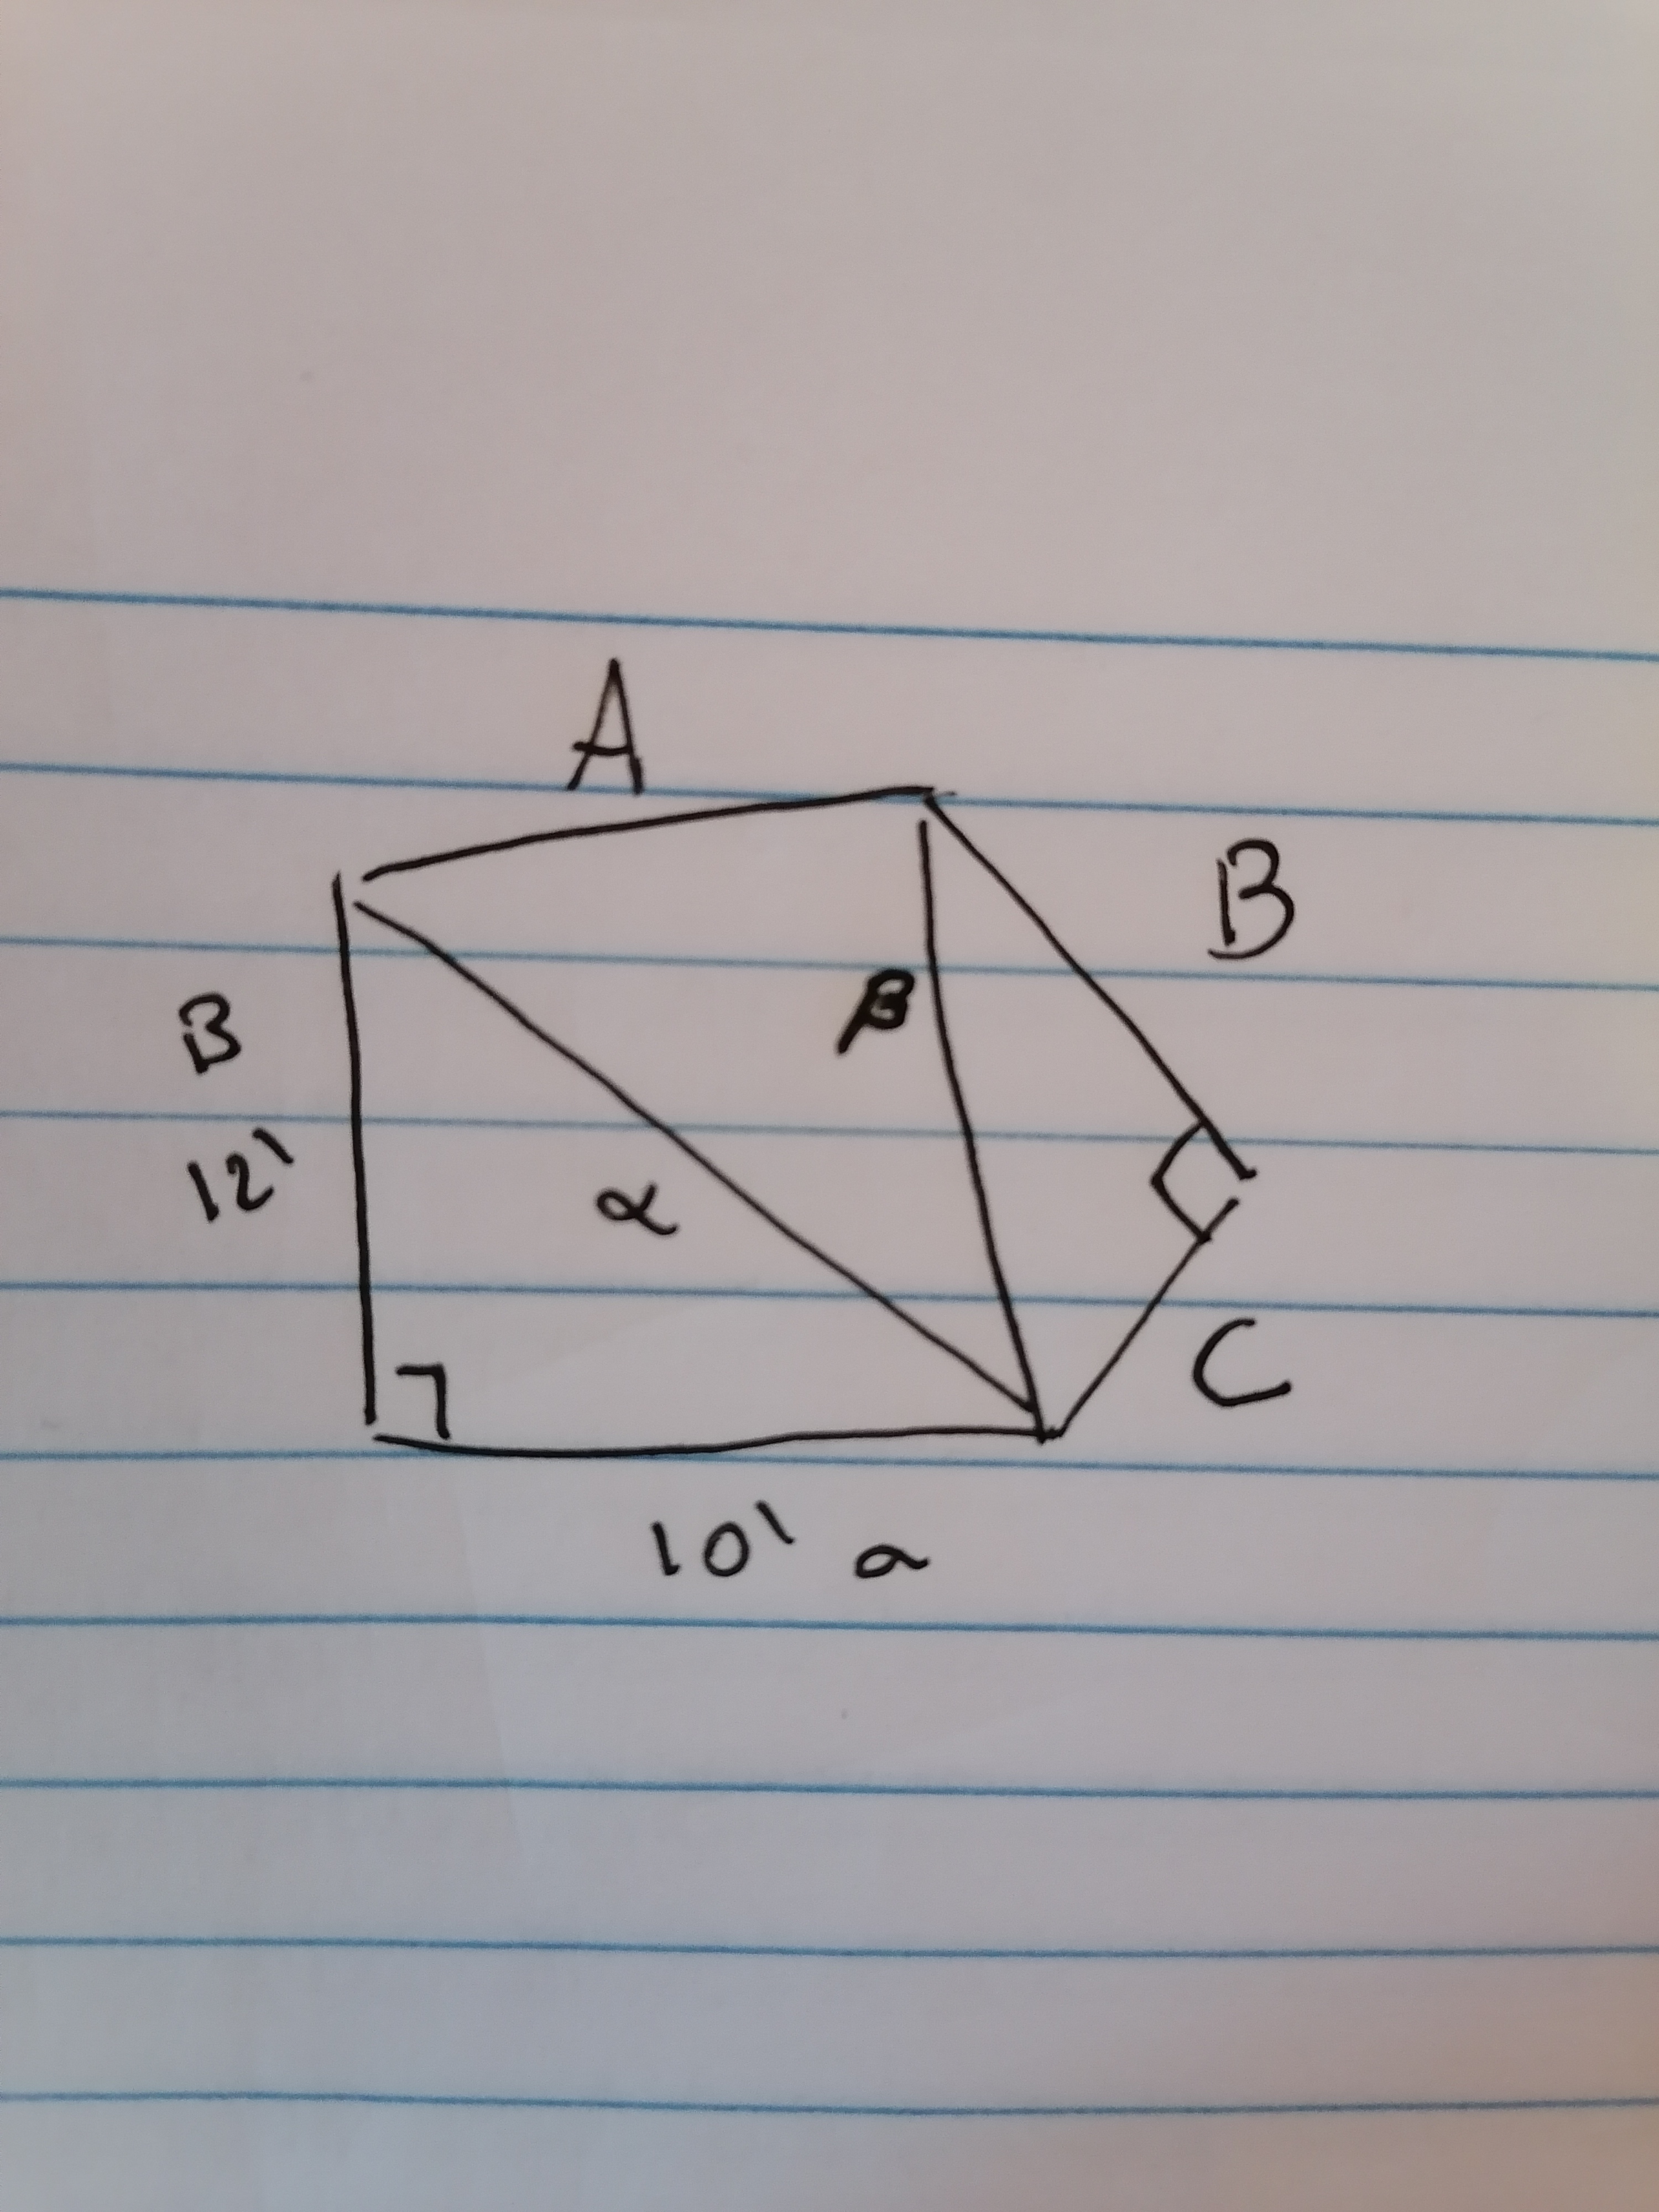 A
B
B
β
12'
α
C
10' a